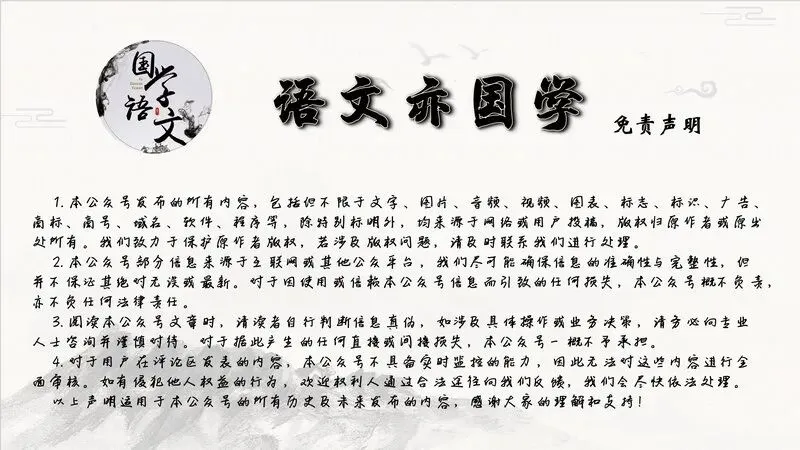 国学
语文
语文亦国学
免责声明
1.本公众号发布的所有内容，包括但不限于文字、图片、音频、视频、图表、标志、标识、广告、
商标、商号、域名、软件、程序等，除特别标明外，均来源于网络或用户投稿，版权归原作者或原出
处所有。我们致力于保护原作者版权，若涉及版权问题，请及时联系我们进行处理。
2.本公众号部分信息来源于互联网或其他公众平台，我们尽可能确保信息的准确性与完整性，但
并不保证其绝对无误或最新。对于因使用或信赖本公众号信息而引致的任何损失，本公众号概不负责，
亦不负任何法律责任。
3.阅读本公众号文章时，请读者自行判断信息真伪，如涉及具体操作或业务决策，请务必向专业
人士咨询并谨慎对待。对于据此产生的任何直接或间接损失，本公众号一概不予承担。
4.对于用户在评论区发表的内容，本公众号不具备实时监控的能力，因此无法对这些内容进行全
面审核。如有侵犯他人权益的行为，欢迎权利人通过合法途径向我们反馈，我们会尽快依法处理。
以上声明适用于本公众号的所有历史及未来发布的内容，感谢大家的理解和支持！